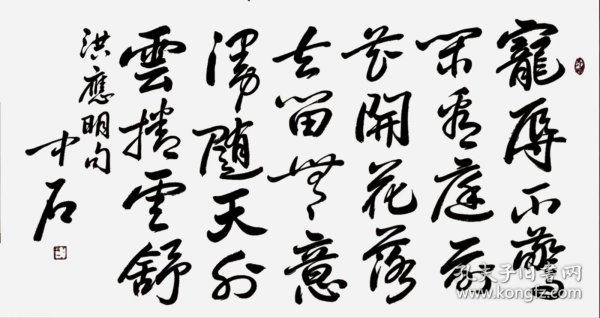 寵辱不驚
閑看庭前
花開花落
去留無意
漫隨天外
雲捲雲舒
洪應明句
中石
孔夫子旧书网
www.kongfz.com